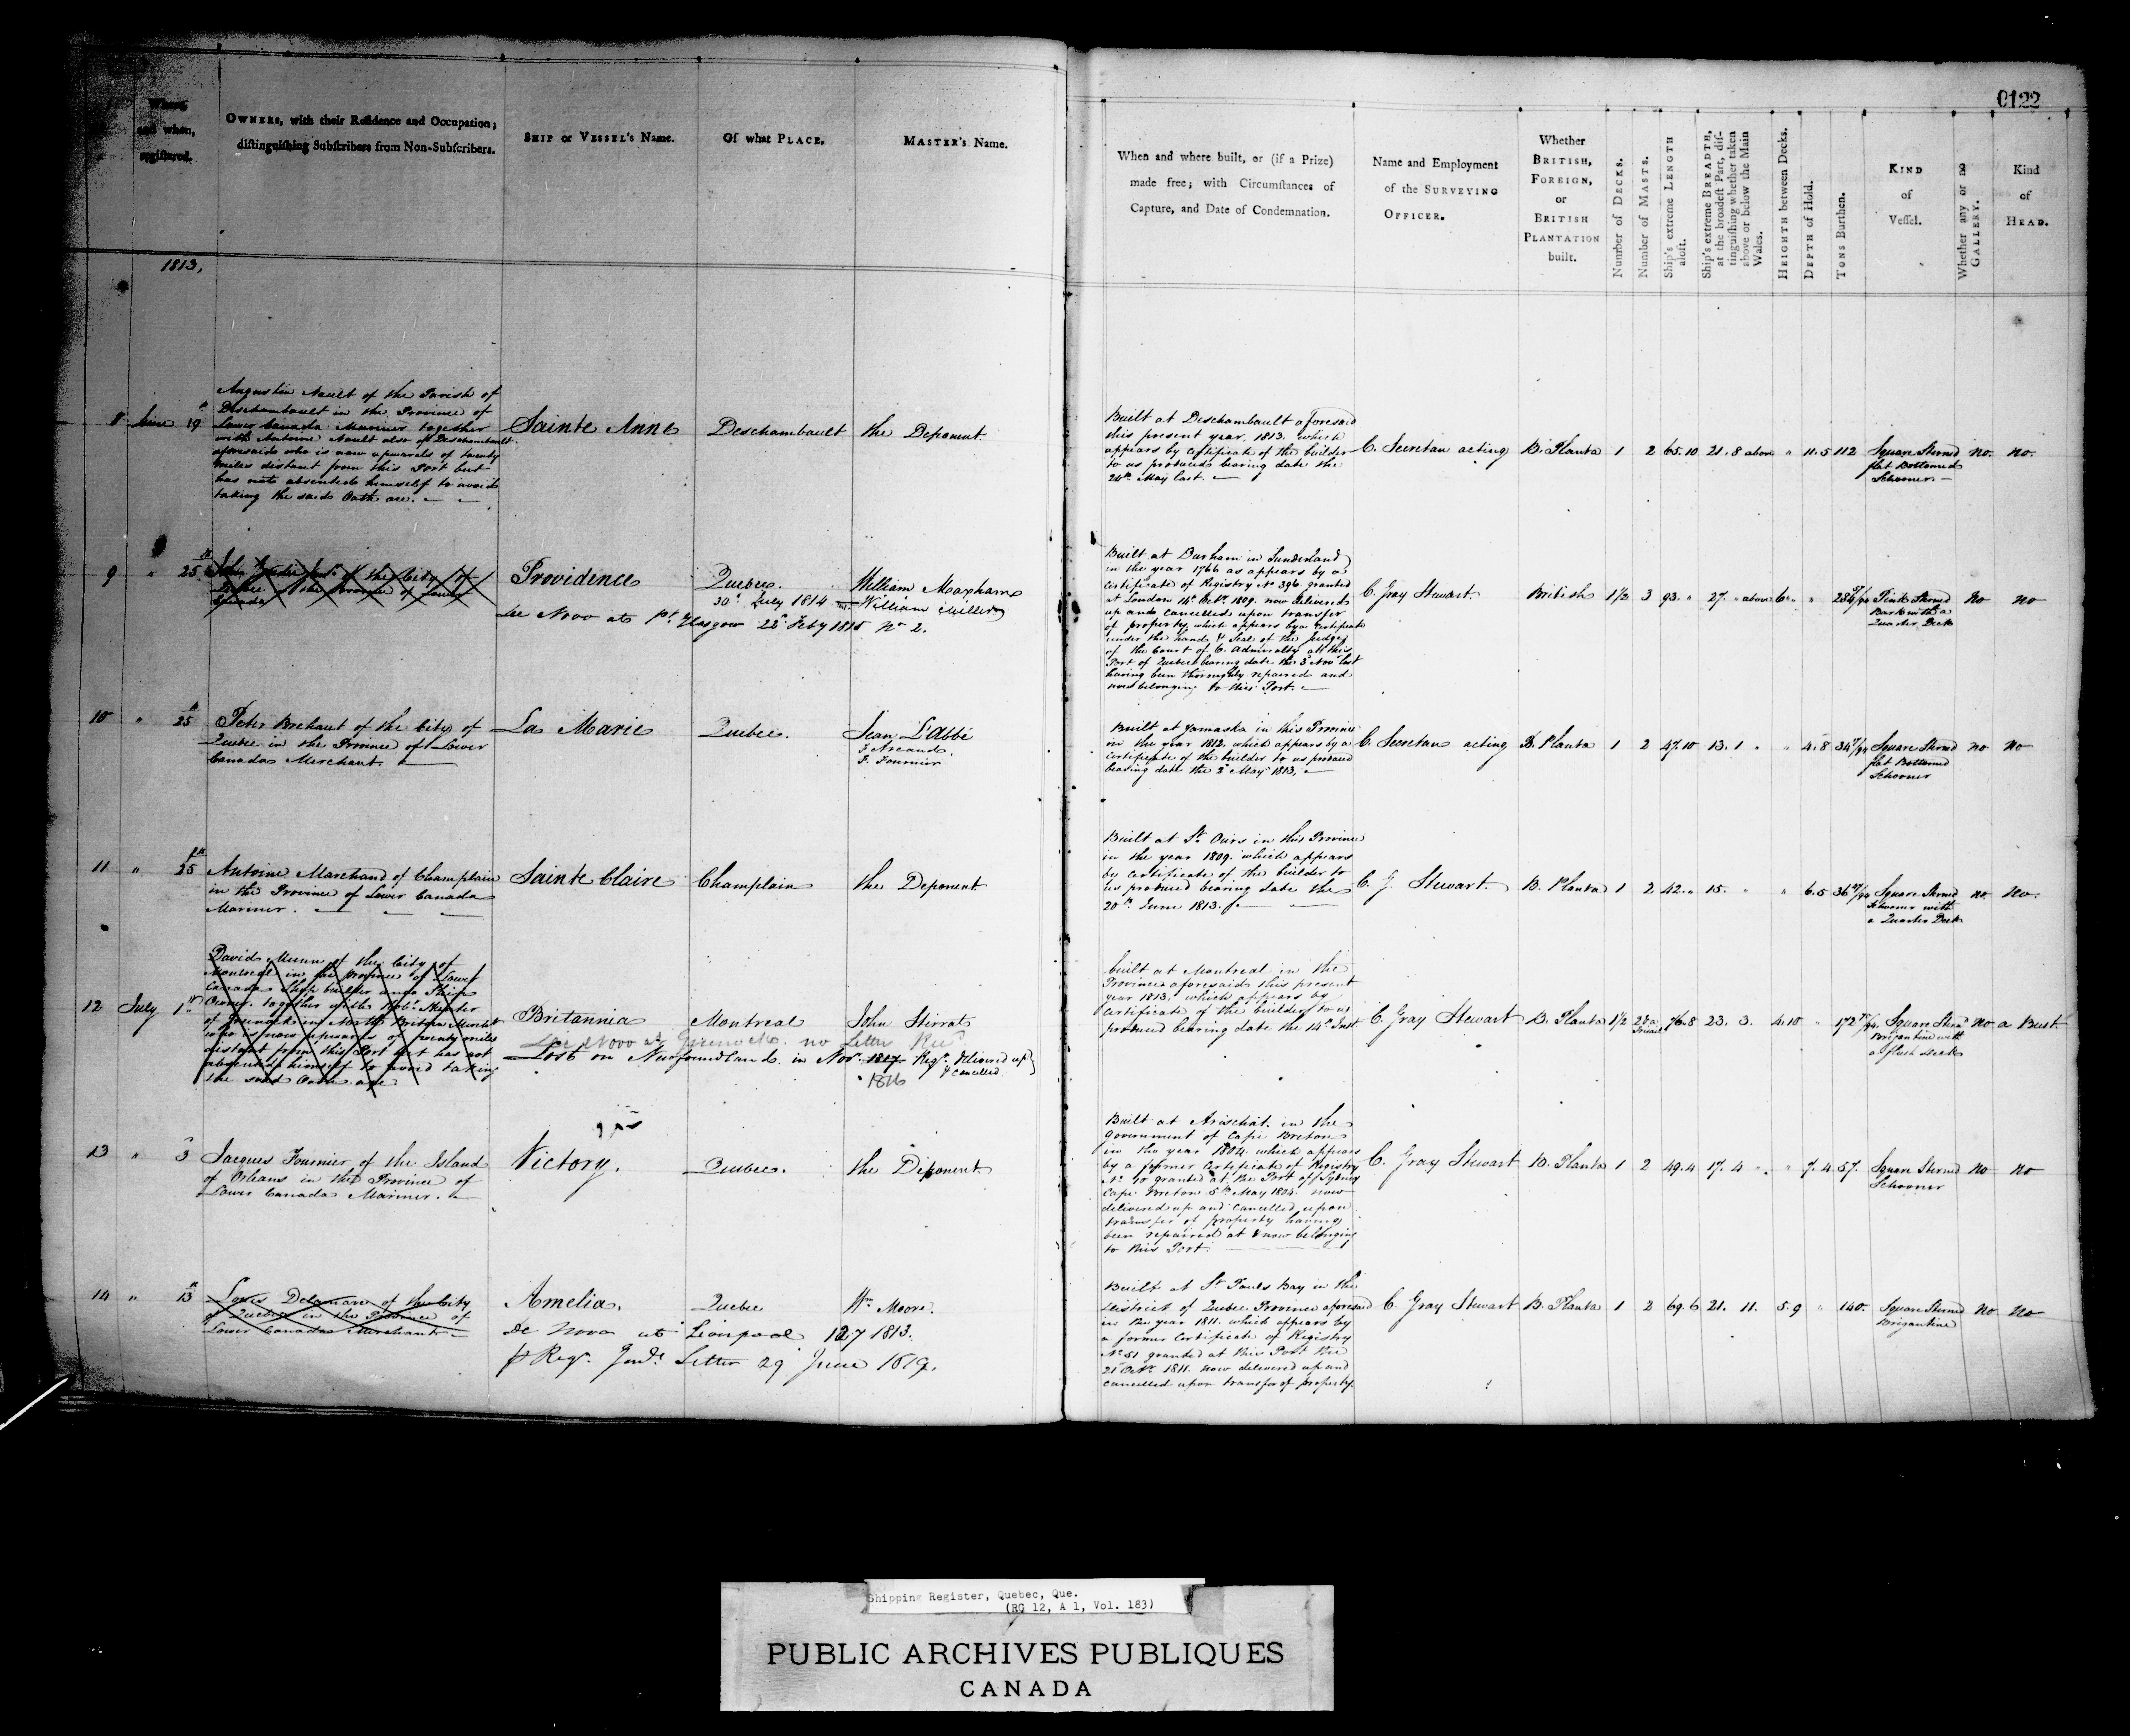 0122
Where and when, registered.
OWNERS, with their Residence and Occupation; distinguishing Subscribers from Non-Subscribers.
SHIP or VESSEL's Name.
Of what PLACE.
MASTER's Name.
When and where built, or (if a Prize) made free; with Circumstances of Capture, and Date of Condemnation.
Name and Employment of the SURVEYING OFFICER.
Whether BRITISH, FOREIGN, or BRITISH PLANTATION built.
Number of DECKS.
Number of MASTS.
Ship's extreme LENGTH aloft.
Ship's extreme BREADTH, at the broadest Part, distinguishing whether taken above or below the Main Wales.
HEIGHTH between Decks.
DEPTH of Hold.
TONS Burthen.
KIND of Vessel.
Whether any or no GALLERY.
Kind of HEAD.
1813.
8 June 19
Augustin Nault of the Parish of
Deschambault in the Province of
Lower Canada Mariner together
with Antoine Nault also of Deschambault
aforesaid who is now upwards of twenty
miles distant from this Port but
has not absented himself to avoid
taking the said Oath are.
Sainte Anne
Deschambault
the Deponent
Built at Deschambault aforesaid
this present year 1813. which
appears by certificate of the builder
to us produced bearing date the
May last.
C. Secretan acting
B. Planta 1 2 65.10 21.8 above " 11.5 112
Square Sterned
flat Bottomed
Schooner.
no. no.
9 " 25
of the City of
Quebec in the Province of Lower
Canada
Providence
Quebec.
William Moxham
30th July 1814 William Miller
De Novo at Pt. Glasgow 22 Feby 1815 No 2.
Built at Durham in Sunderland
in the year 1766 as appears by a
Certificate of Registry No 396 granted
at London 14th Octr. 1809. now delivered
up and Cancelled upon transfer
of property, which appears by a Certificate
under the hand & Seal of the Judge
of the Court of V. Admiralty at this
Port of Quebec bearing date the 3d Novr last
having been thoroughly repaired and
now belonging to this Port.
C. Gray Stewart.
British 1/2 3 93. " 27. " above 6 "
Pink Sterned
Bark with a
Quarter Deck
no no
10 " 25
Peter Brehaut of the City of
Quebec in the Province of Lower
Canada Merchant.
La Marie
Quebec.
Jean L'abbé
J. Arcand.
F. Fournier
Built at Yamaska in this Province
in the year 1812. which appears by a
certificate of the builder to us produced
bearing date the 2d May 1813,
C. Secretan acting
B. Planta 1 2 47.10 13.1 " " 4.8
Square Sterned
flat Bottomed
Schooner
no no
11 " 25
Antoine Marchand of Champlain
in the Province of Lower Canada
Mariner.
Sainte Claire
Champlain
the Deponent
Built at St. Ours in this Province
in the year 1809. which appears
by certificate of the builder to
us produced bearing date the
20th June 1813.
C. G. Stewart.
B. Planta 1 2 42. " 15. " " 6.5
Square Sterned
Schooner with
a Quarter Deck
no. no.
12 July 1st
David Munn of the City of
Montreal in the Province of Lower
Canada Ship builder and Ship
Owner, together with Robt. Hunter
of Greenock in North Britain Mercht
who is now upwards of twenty miles
distant from this Port but has not
absented himself to avoid taking
the said Oath are
Britannia
Montreal
John Stirrat
De Novo at Greenock. no Letter Recd.
Lost on Newfoundland. in Novr. 1817 Regr. delivered up
& cancelled
1816
built at Montreal in the
Province aforesaid this present
year 1813, which appears by
Certificate of the builder to us
produced bearing date the 14th Inst
C. Gray Stewart
B. Planta 1/2 76.8 23. 3. 4.10 "
Square Sternd
Brigantine with
a flush deck
no a Bust.
13 " 3
Jacques Fournier of the Island
of Orleans in the Province of
Lower Canada Mariner.
Victory.
Quebec.
the Deponent
Built at Arischat. in the
Government of Cape Breton
in the year 1804. which appears
by a former Certificate of Registry
No. 10 granted at the Port of Sydney
Cape Breton 5th May 1804. now
delivered up and Cancelled upon
transfer of property having
been repaired at & now belonging
to this Port.
C. Gray Stewart
B. Planta 1 2 49.4 17.4 " " 7.4 57.
Square Sterned
Schooner
no no
14 " 13
Louis Delamare of the City
of Quebec in the Province of
Lower Canada Merchant
Amelia.
Quebec
Wm Moore.
De Novo at Liverpool 127 1813.
Letter 29 June 1819.
Built at St. Pauls Bay in the
District of Quebec Province aforesaid
in the year 1811. which appears by
a former Certificate of Registry
No. 51 granted at this Port the
21st Octr. 1811. now delivered up and
cancelled upon transfer of property.
C. Gray Stewart
B. Planta 1 2 69.6 21. 11. 5.9 " 140.
Square Sterned
Brigantine
no no
Shipping Register, Quebec, Que.
(RG 12, A 1, Vol. 183)
PUBLIC ARCHIVES PUBLIQUES
CANADA